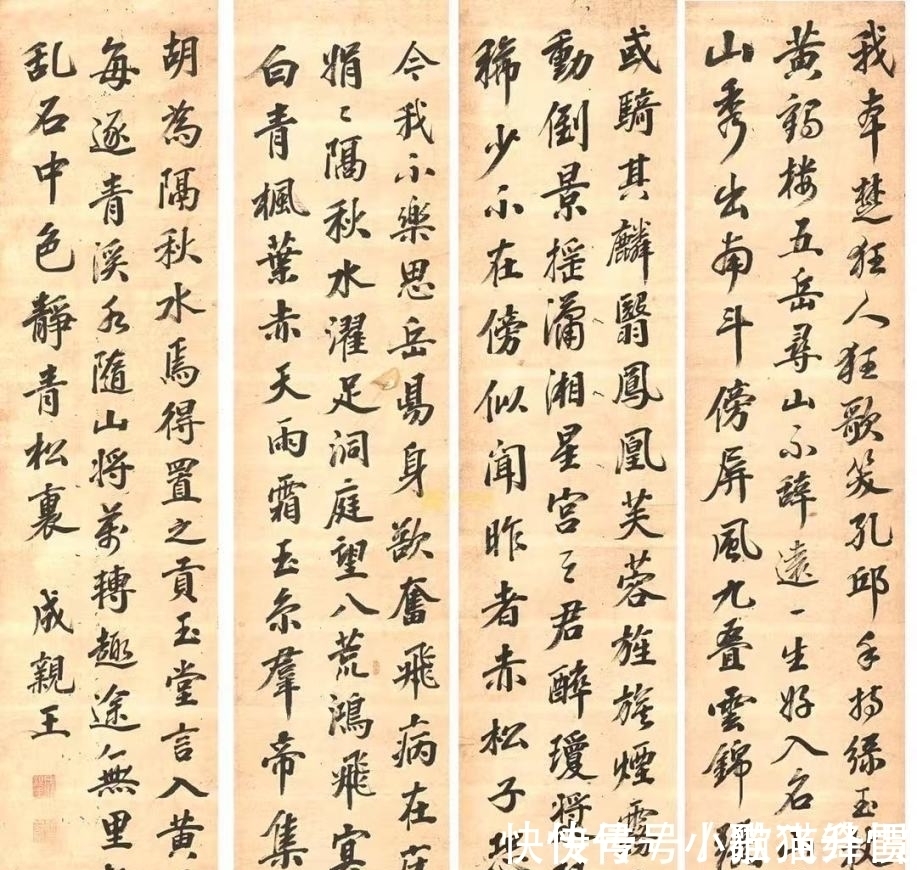 我本楚狂人狂歌笑孔邱手持綠玉杖
黄鶴楼五岳尋山不辭遠一生好入名
山秀出南斗傍屏風九叠雲錦張
或騎其麟翳鳳凰芙蓉旌旗煙霧
動倒景摇瀟湘星宫之君醉瓊漿
稀少不在傍似聞昨者赤松子恐
今我不樂思岳昜身欲奮飛病在床
娟〻隔秋水濯足洞庭望八荒鴻飛冥
白青楓葉赤天雨霜玉京羣帝集
胡為隔秋水焉得置之貢玉堂言入黄
每逐青溪水隨山將萬轉趣途無里
乱石中色靜青松裏 成親王